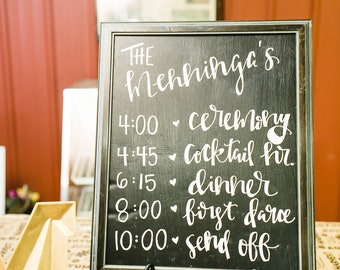 THE
Menninga's
4:00 ♥ ceremony
4:45 ♥ cocktail hr.
6:15 ♥ dinner
8:00 ♥ first dance
10:00 ♥ send off